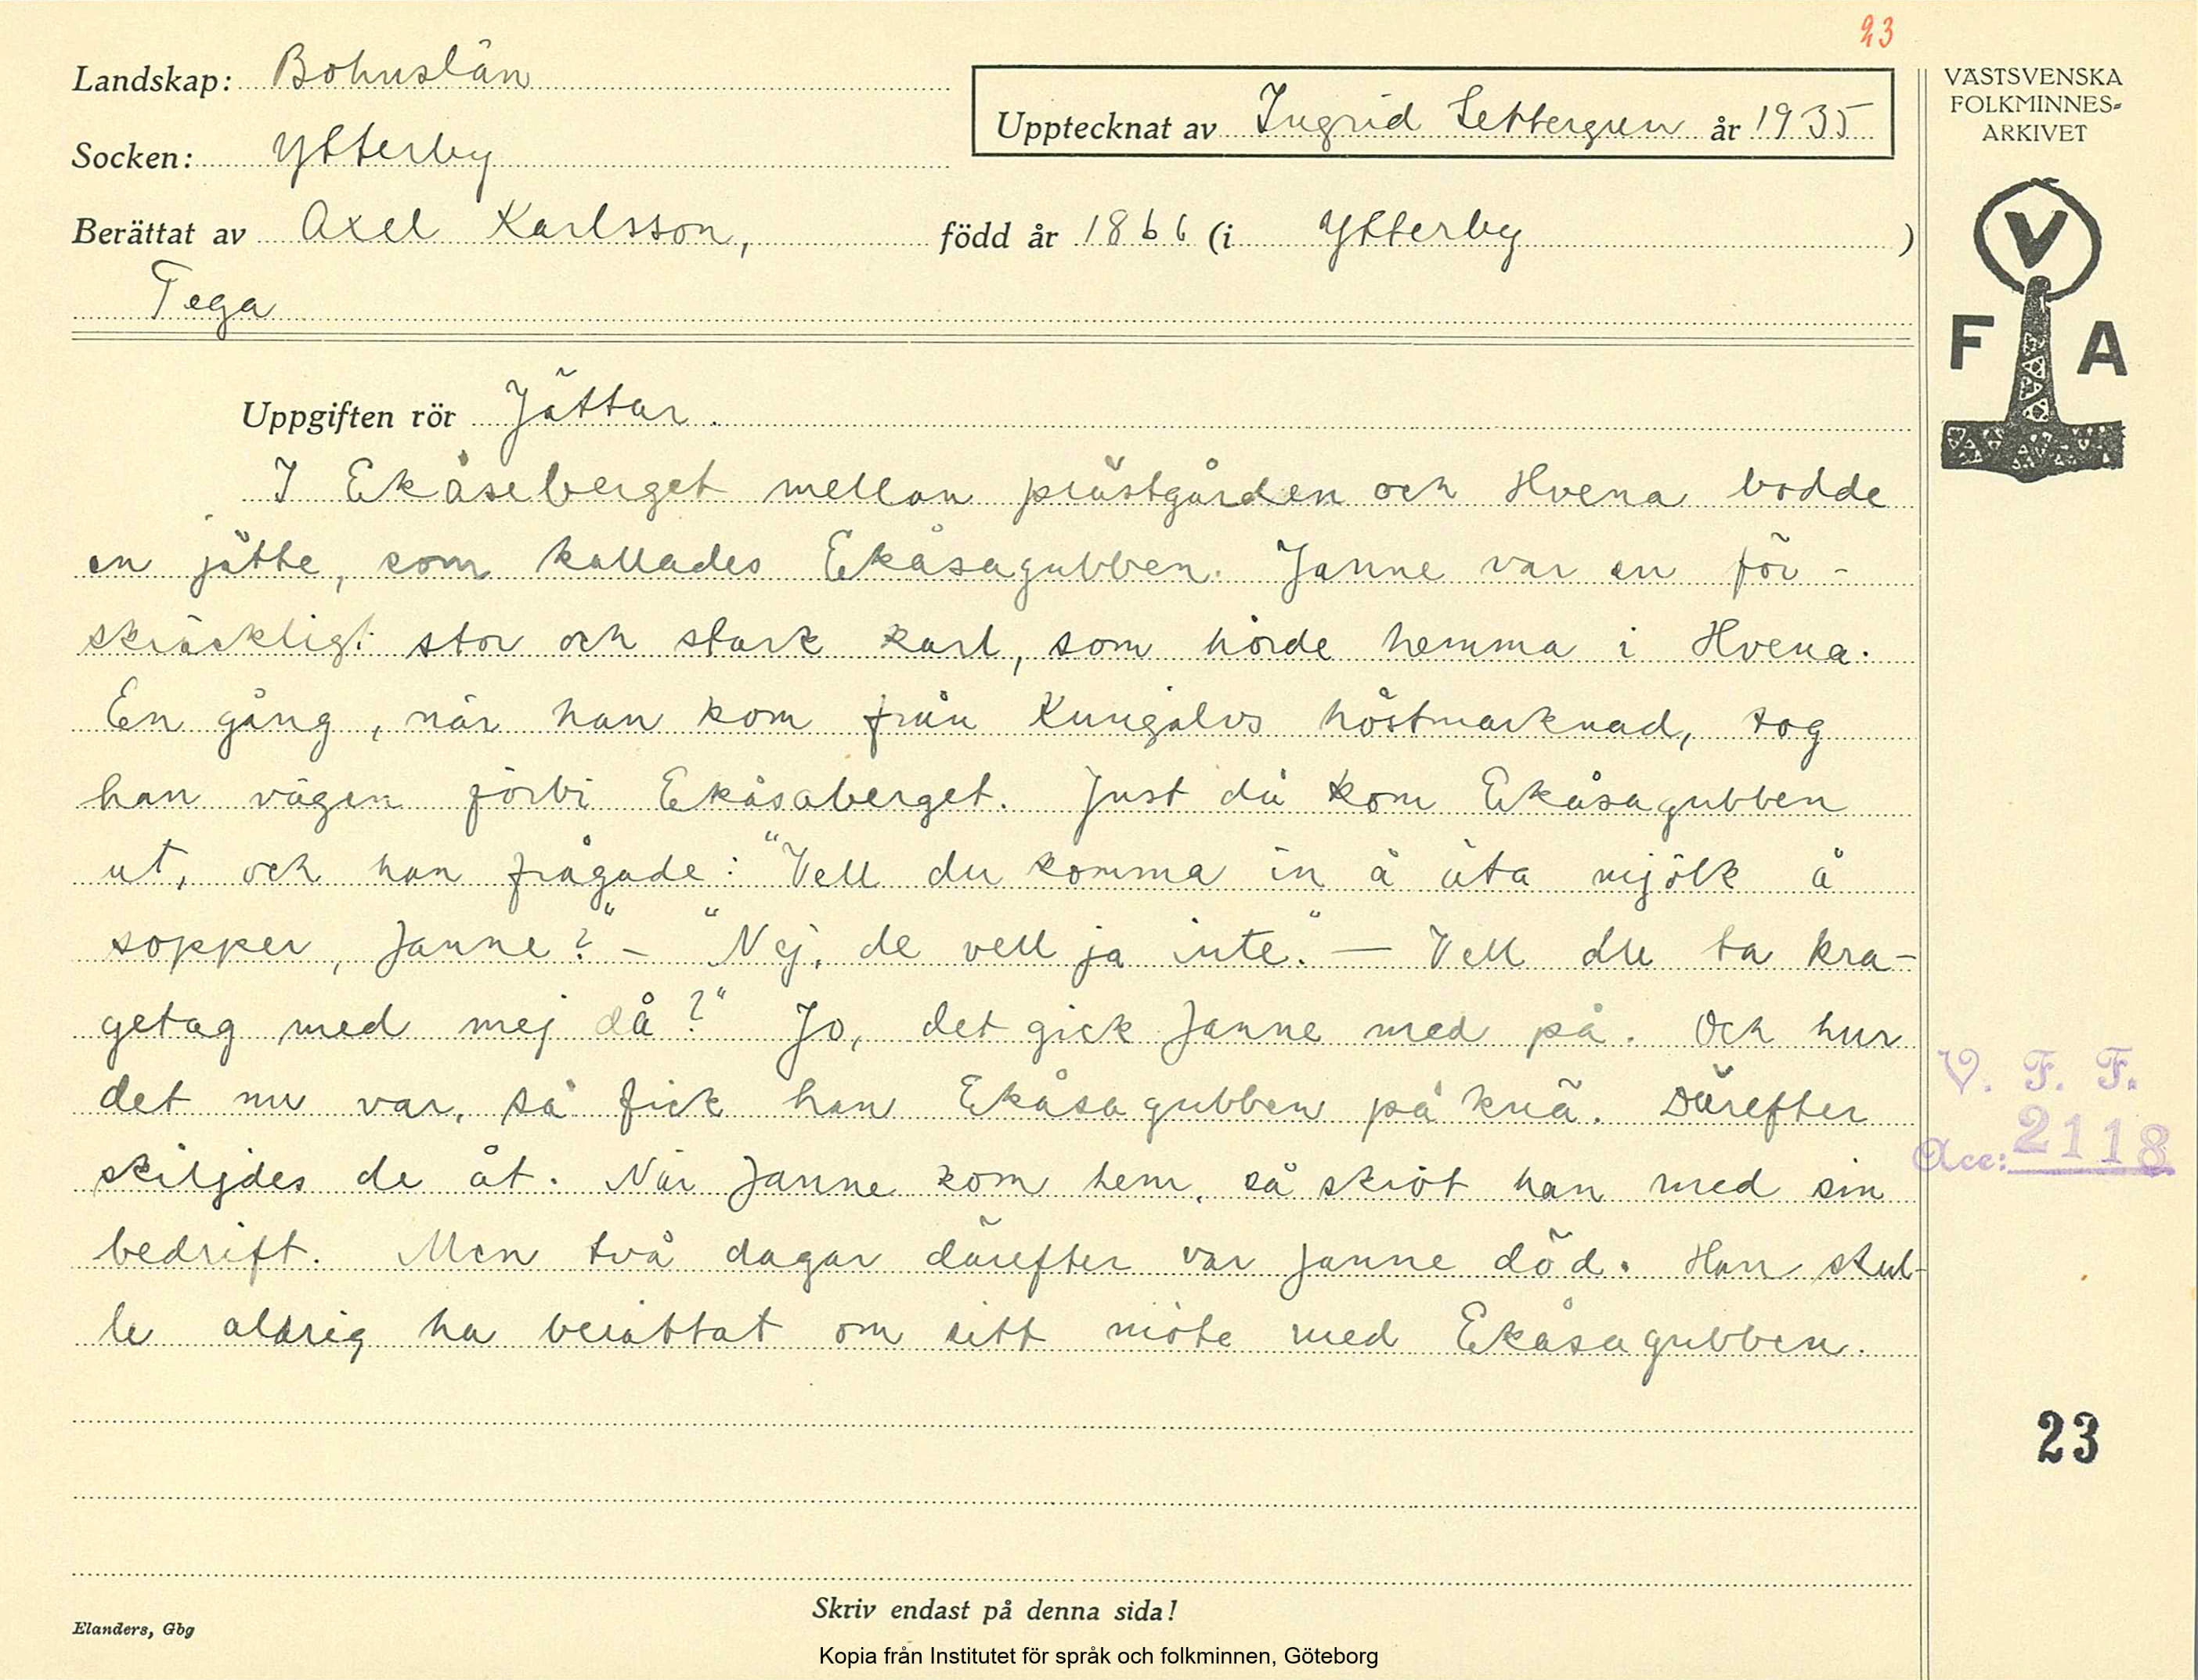 23
Landskap: Bohuslän
Upptecknat av Ingrid Settergren år 1935
Socken: Ytterby
Berättat av Axel Karlsson, född år 1866 (i Ytterby )
Tega
VÄSTSVENSKA
FOLKMINNES-
ARKIVET
V
F A
Uppgiften rör Jättar.
I Ekåseberget mellan prästgården och Hvena bodde
en jätte, som kallades Ekåsagubben. Janne var en för-
skräckligt stor och stark karl, som hörde hemma i Hvena.
En gång, när han kom från Kungälvs höstmarknad, tog
han vägen förbi Ekåsaberget. Just då kom Ekåsagubben
ut, och han frågade: "Vell du komma in å äta mjölk å
sopper, Janne?" - "Nej, de vell ja inte." — Vell du ta kra-
getag med mej då?" Jo, det gick Janne med på. Och hur
det nu var, så fick han Ekåsagubben på knä. Därefter
skiljdes de åt. När Janne kom hem, så skröt han med sin
bedrift. Men två dagar därefter var Janne död. Han skul-
le aldrig ha berättat om sitt möte med Ekåsagubben.
V. F. F.
Acc: 2118
23
Skriv endast på denna sida!
Elanders, Gbg
Kopia från Institutet för språk och folkminnen, Göteborg